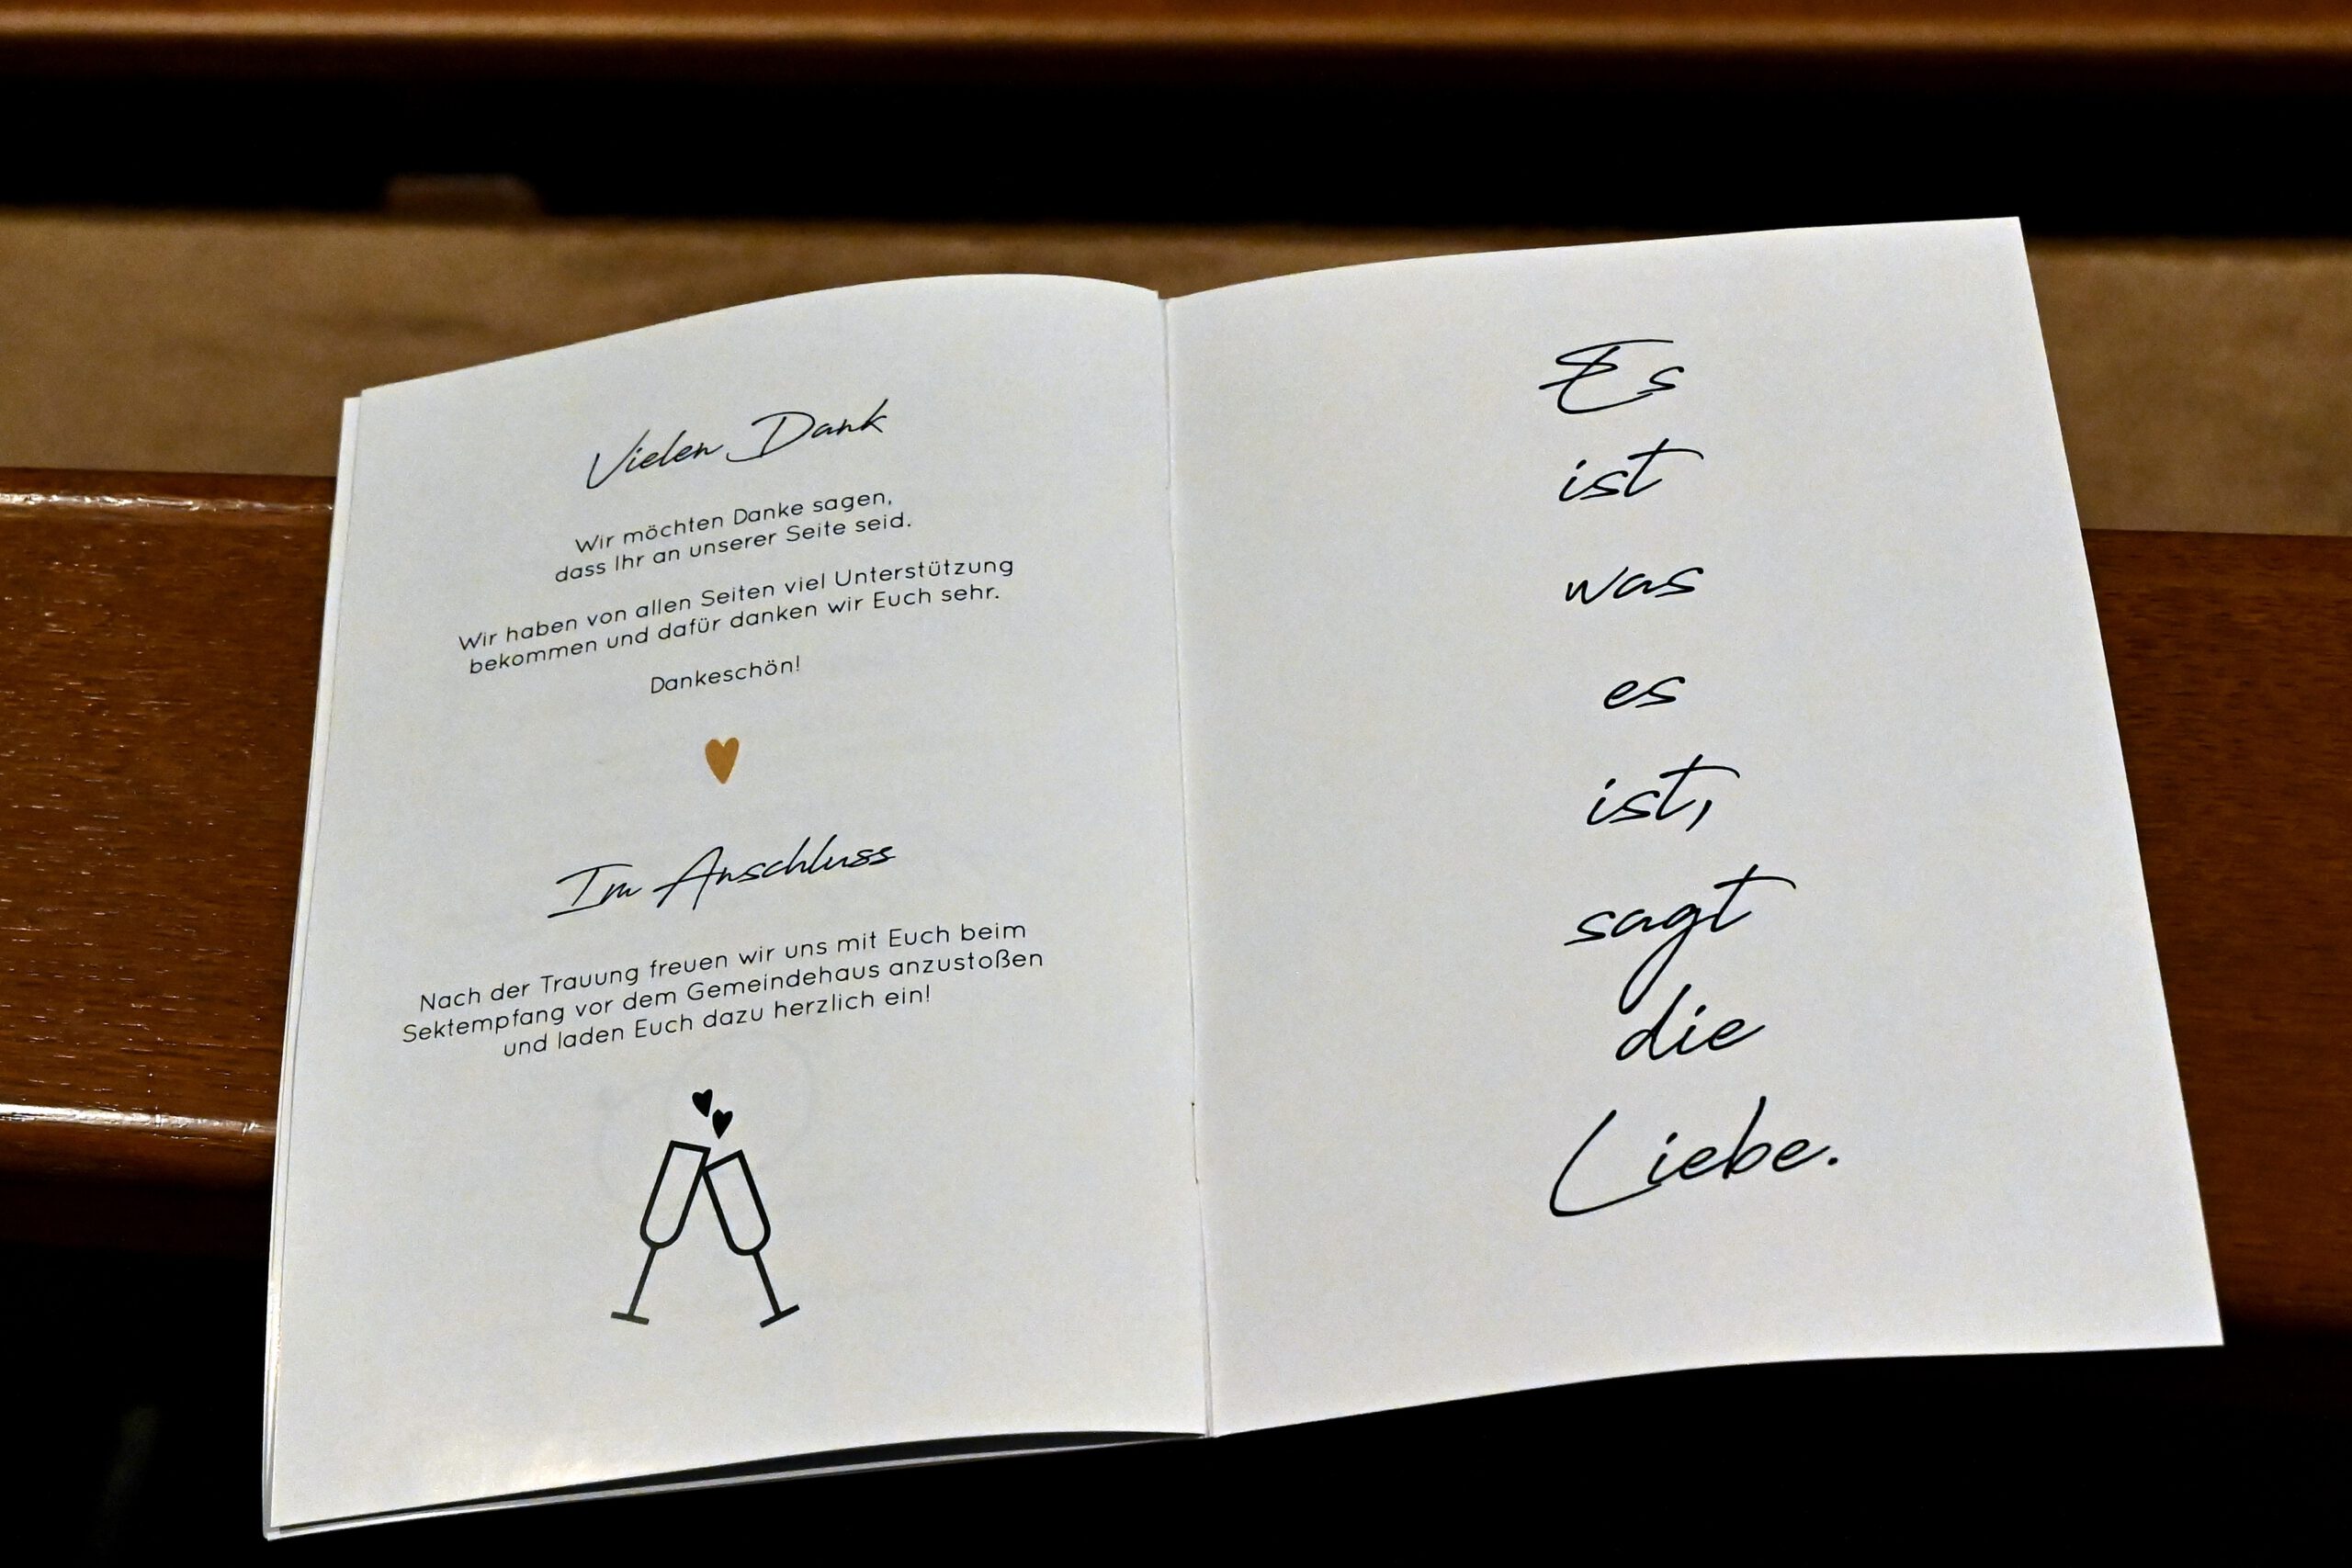 Vielen Dank
Wir möchten Danke sagen,
dass Ihr an unserer Seite seid.
Wir haben von allen Seiten viel Unterstützung
bekommen und dafür danken wir Euch sehr.
Dankeschön!
Im Anschluss
Nach der Trauung freuen wir uns mit Euch beim
Sektempfang vor dem Gemeindehaus anzustoßen
und laden Euch dazu herzlich ein!
Es
ist
was
es
ist,
sagt
die
Liebe.